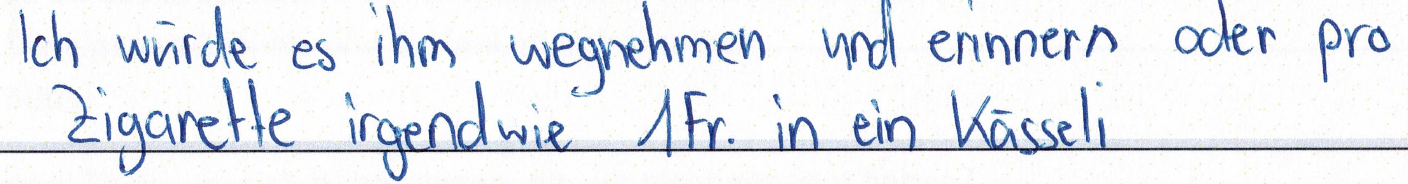 Ich würde es ihm wegnehmen und erinnern oder pro
Zigarette irgendwie 1 Fr. in ein Kässeli